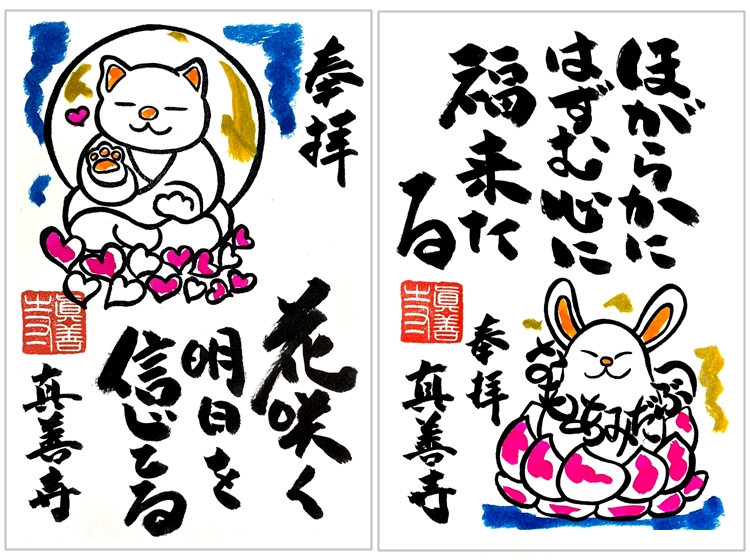 奉拝
花咲く
明日を
信じてる
真善寺
眞善
寺
ほがらかに
はずむ心に
福来た
る
なむとちみだぶ
奉拝
真善寺
眞善
寺